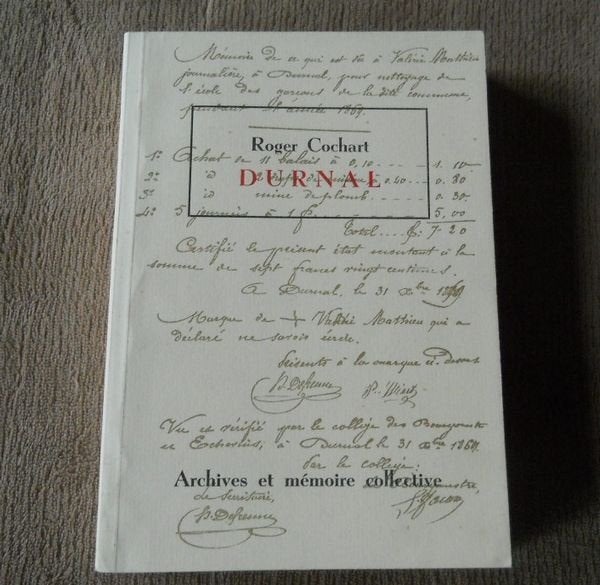 Mémoire de ce qui est dû à Valérie Matthieu
journalière, à Durnal, pour nettoyage de
l'école des garçons de la dite commune,
pendant l'année 1869.
Roger Cochart
1° Achat de 11 balais à 0,10 1.10
DURNAL
2° id à 0.40 0.80
3° id mine de plomb 0.30
4° 5 journées à 1 f. 5,00
Total 7.20
Certifié le présent état montant à la
somme de sept francs vingt centimes.
A Durnal, le 31 Xbre 1869
Marque de + Valérie Mathieu qui a
déclaré ne savoir écrire.
Présents à la marque ci-dessus
Vu et vérifié par le collège des Bourgmestre
et Echevins, à Durnal le 31 Xbre 1869.
Par le collège:
Archives et mémoire collective
Le Secrétaire,